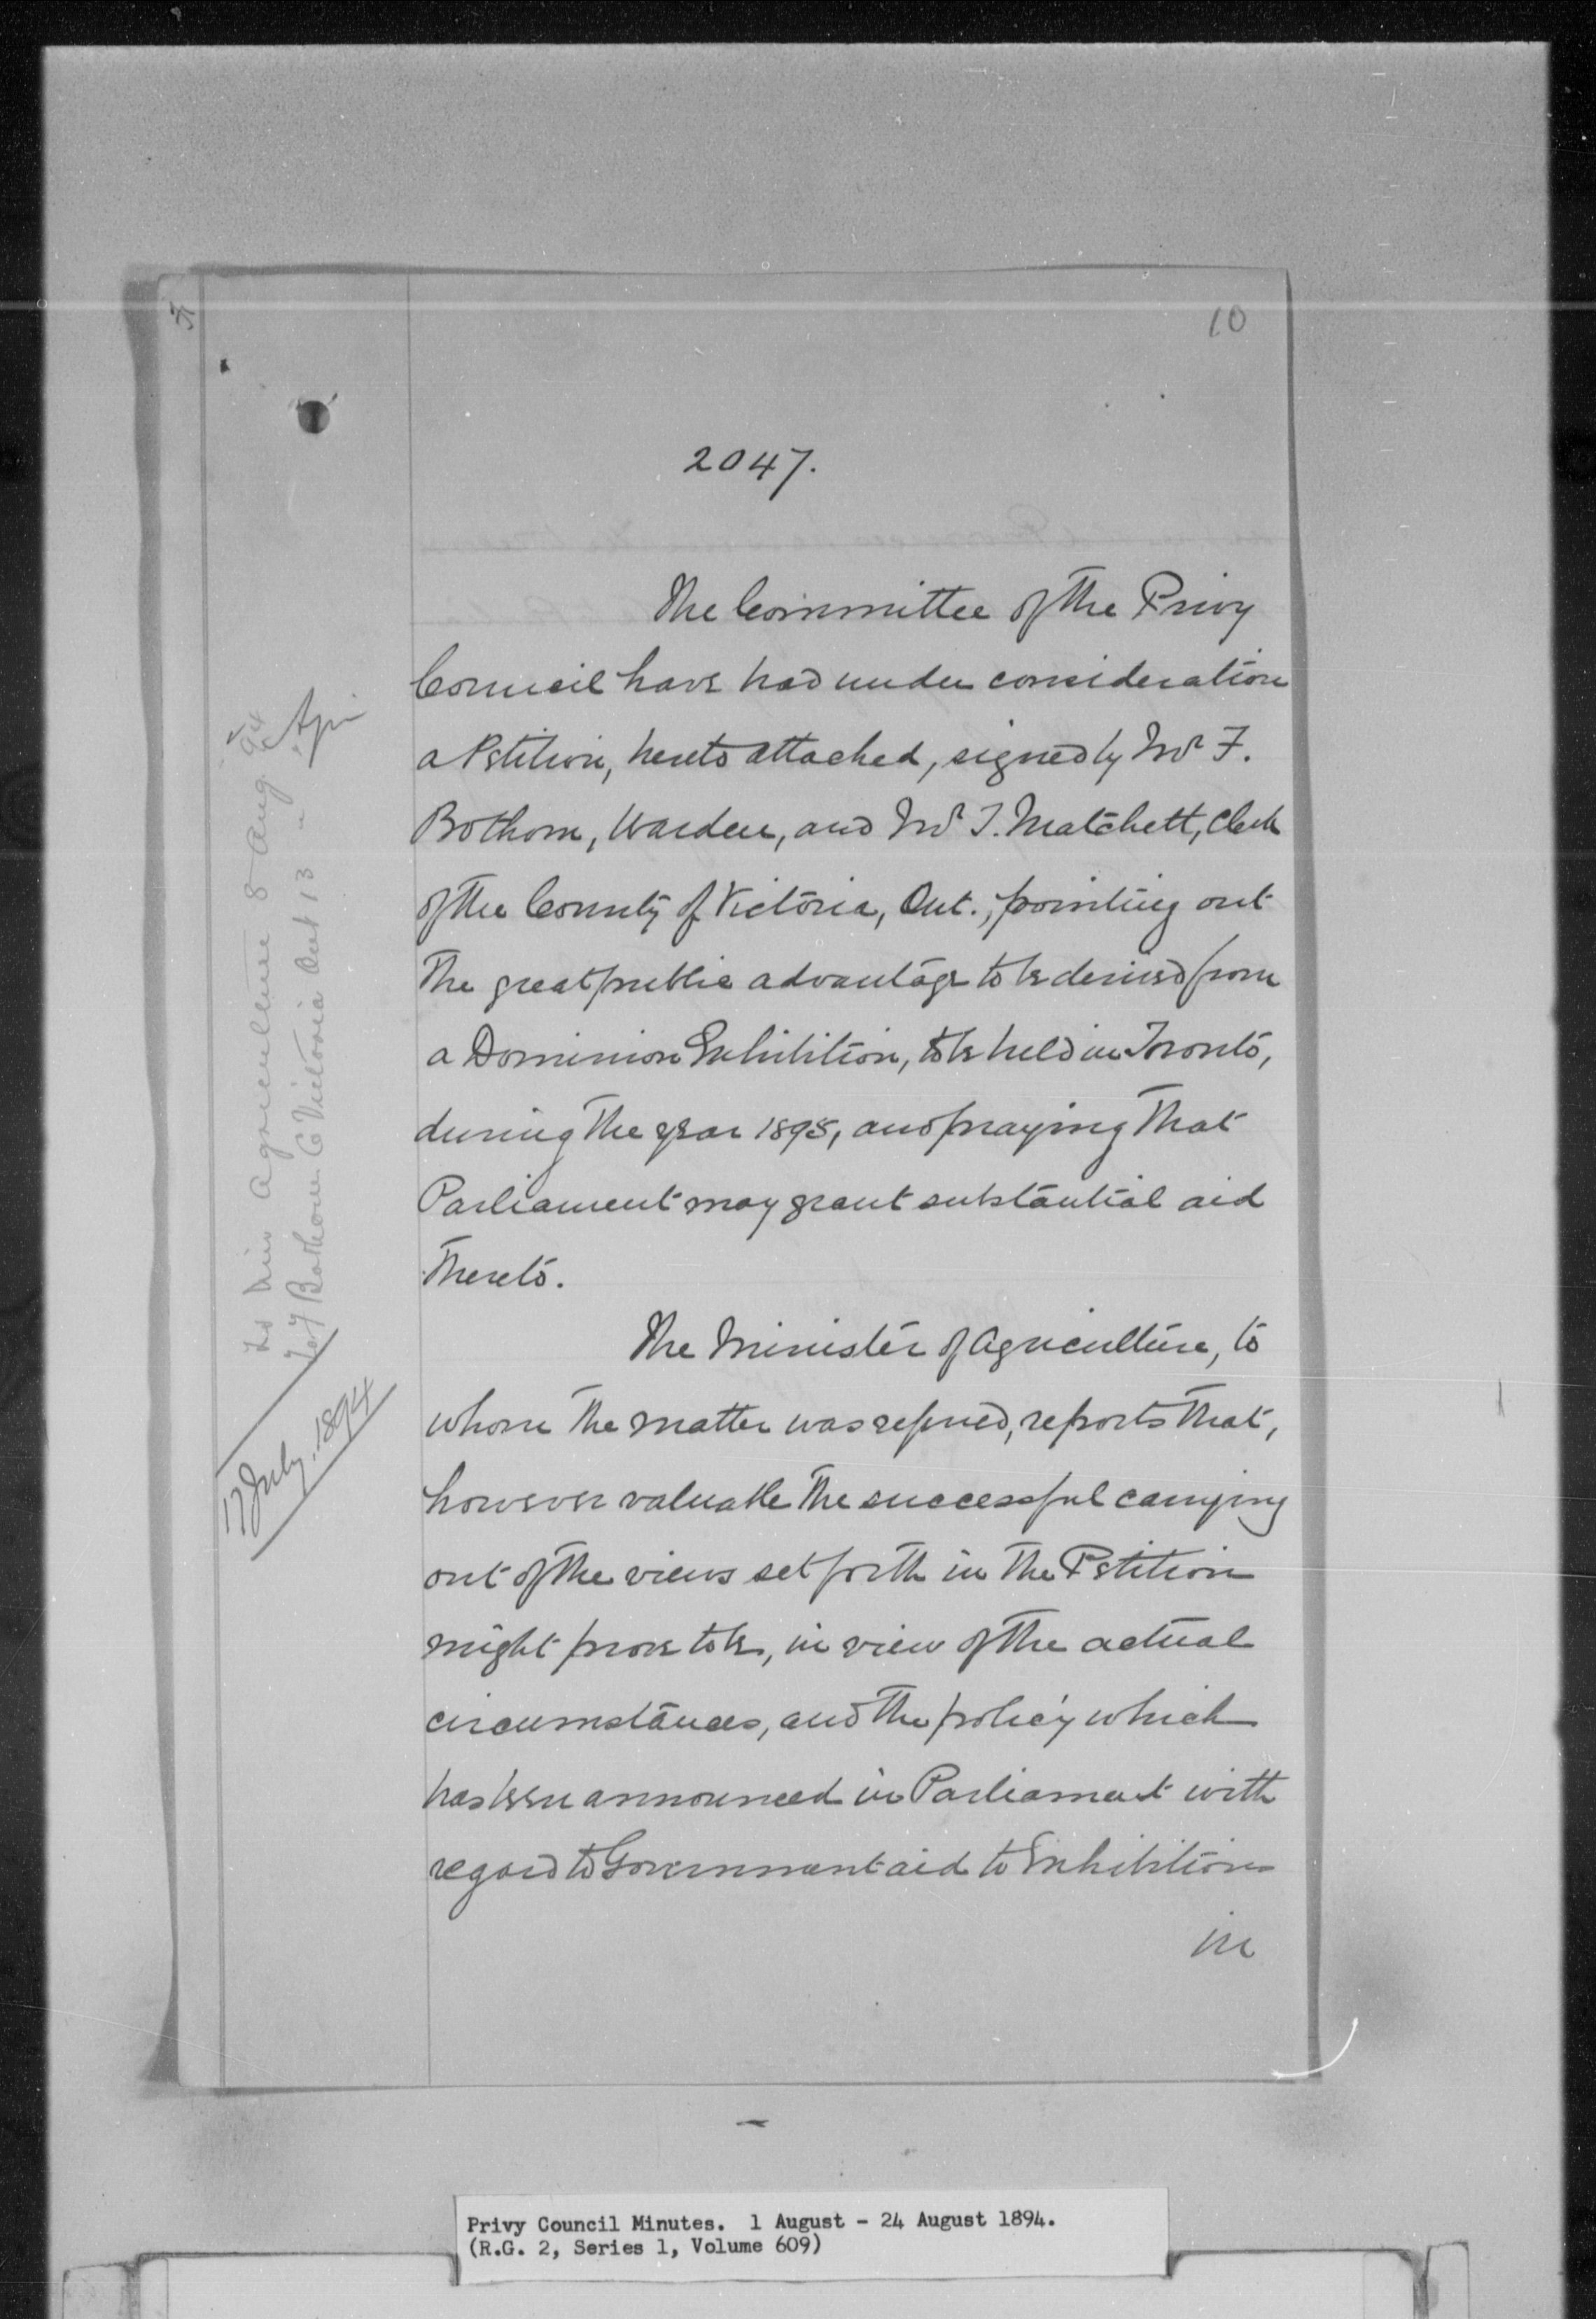 10
2047.
The Committee of the Privy
Council have had under consideration
a Petition, hereto attached, signed by Mr F.
Bothom, Warden, and Mr T. Matchett, Clerk
of the County of Victoria, Ont., pointing out
the great public advantage to be derived from
a Dominion Exhibition, to be held in Toronto,
during the year 1895, and praying that
Parliament may grant substantial aid
thereto.
The Minister of Agriculture, to
whom the matter was referred, reports that,
however valuable the successful carrying
out of the views set forth in the Petition
might prove to be, in view of the actual
circumstances, and the policy which
has been announced in Parliament with
regard to Government aid to Exhibitions
in
To Min Agriculture 8 Aug 94
To F Bothom Co Victoria Ont 13 "
17 July, 1894
Privy Council Minutes. 1 August - 24 August 1894.
(R.G. 2, Series 1, Volume 609)